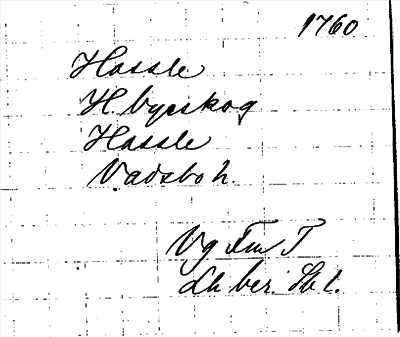 1760
Hassle
H. byskog
Hassle
Vadsbo h.
Vg Fm T
Lh ber. Sbt.